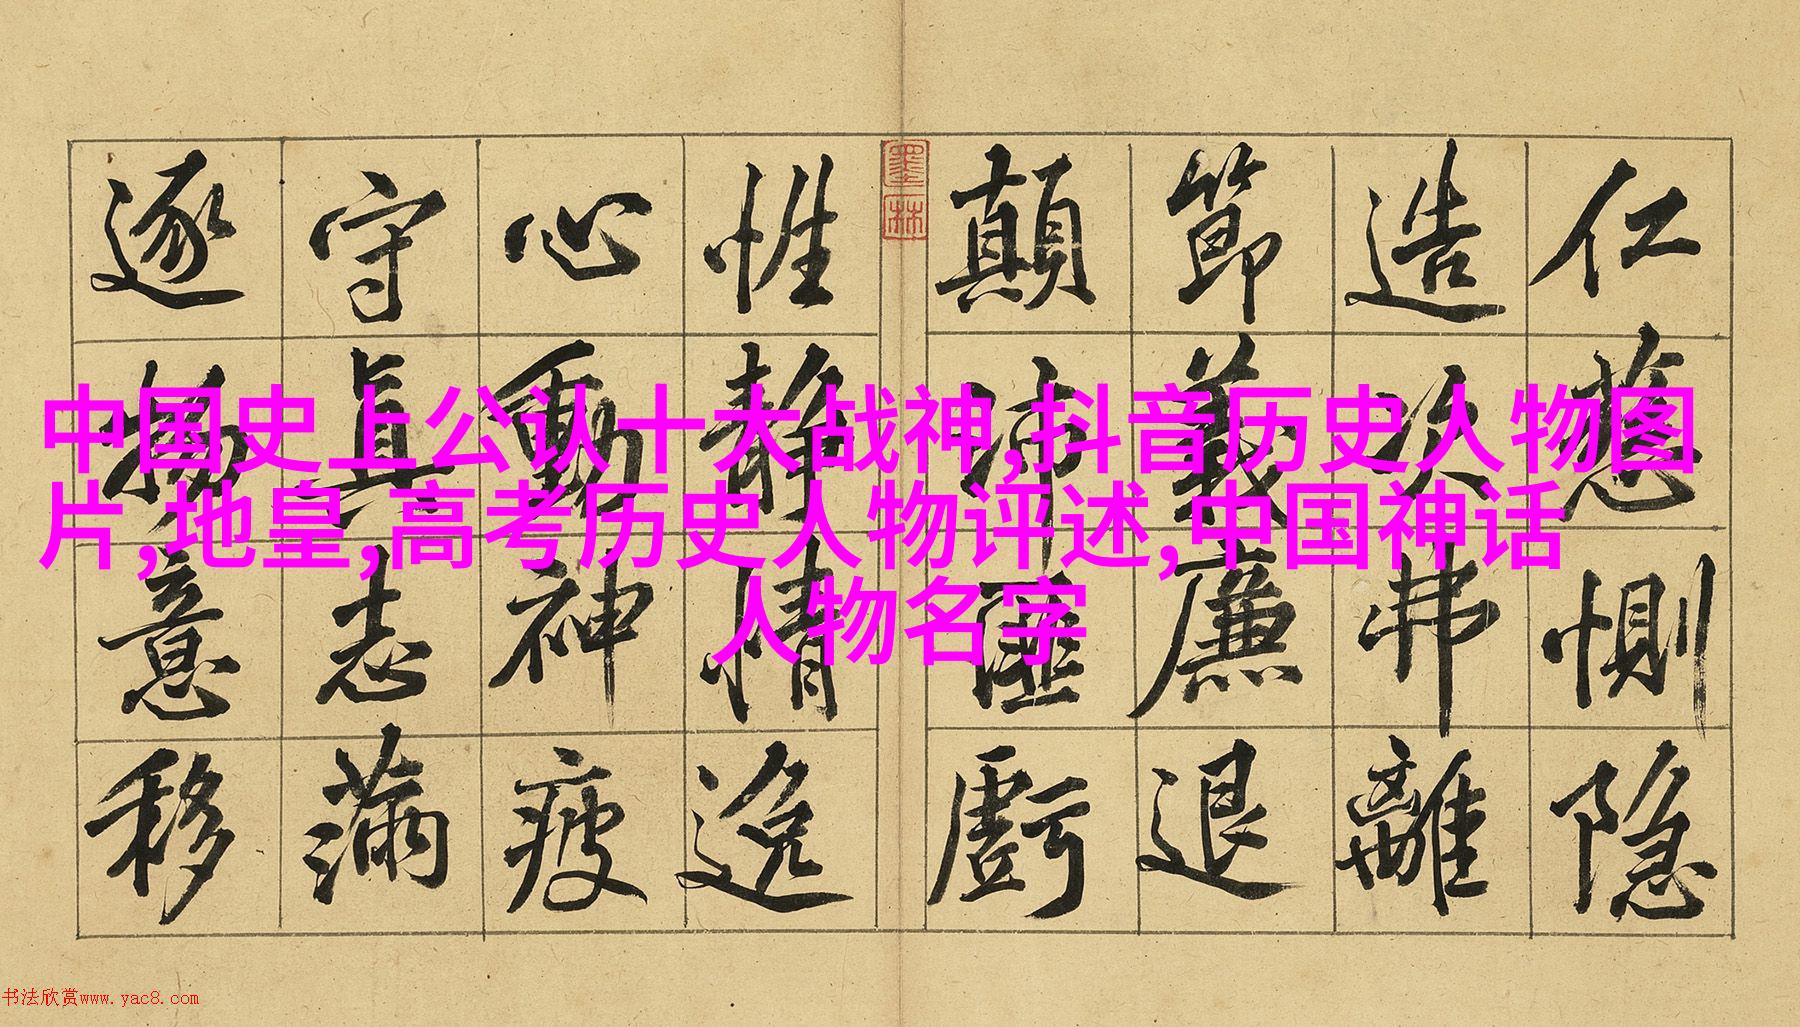 中国史上公认十大战神,抖音历史人物图
片,地皇,高考历史人物评述,中国神话
人物名字
仁慈惻隐
造次弗離
節義廉退
顛沛匪虧
墨林
性静情逸
心動神疲
守真志滿
逐物意移
书法欣赏www.yac8.com